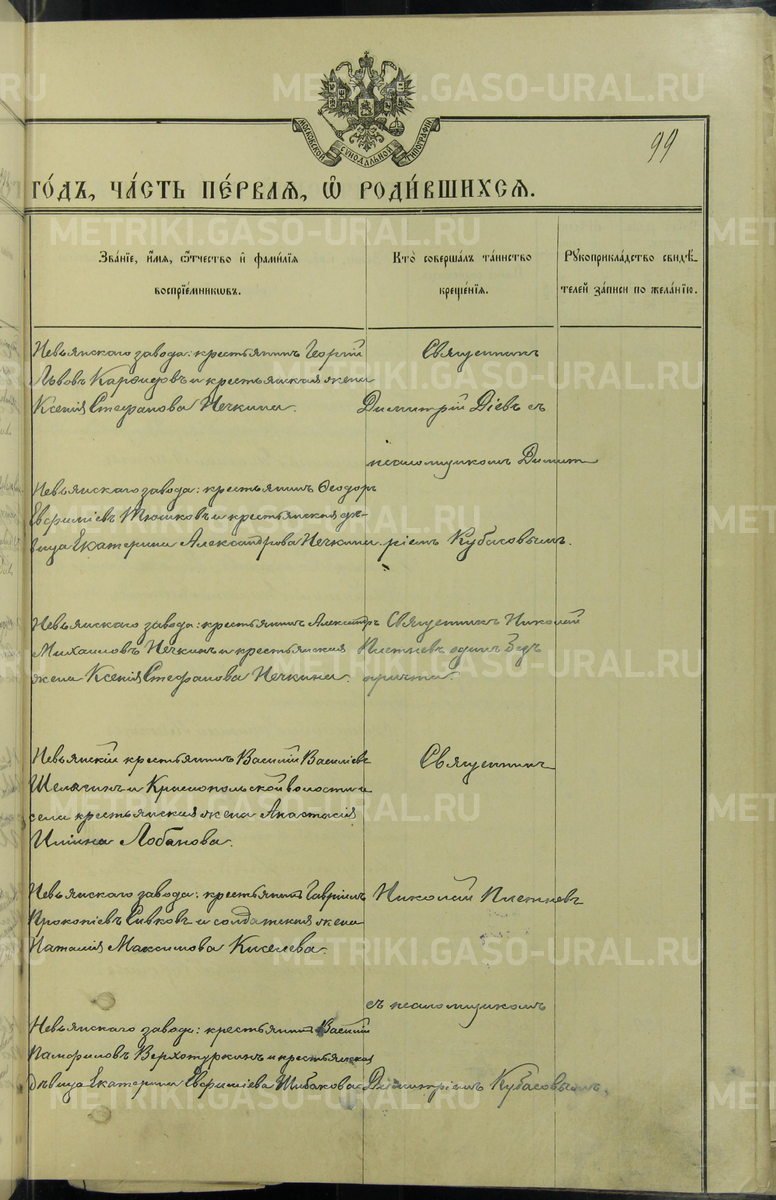 METRIKI.GASO-URAL.RU
МОСКОВСКОЙ СѴНОДАЛЬНОЙ ТИПОГРАФІИ
99
ГО́ДЪ, ЧА́СТЬ ПЕ́РВАЯ, Ѡ РОДИ́ВШИХСЯ.
Зва́нїе, и҆́мя, ѻ҆́тчество и҆ фами́лїя
воспрїе́мникѡвъ.
Кто̀ соверша́лъ та́инство
креще́нїя.
Рꙋкоприкла́дство свидѣ́-
телей за́писи по жела́нїю.
Невьянскаго завода: крестьянинъ Георгій
Львовъ и крестьянская жена
Ксенія Стефанова Нечкина.
Священникъ
Димитрій Діевъ съ
псаломщикомъ Димит
Невьянскаго завода: крестьянинъ Ѳеодоръ
Евфиміевъ Тюшковъ и крестьянская дѣ-
вица Екатерина Александрова Нечкина
ріемъ Кубасовымъ.
Невьянскаго завода: крестьянинъ Александръ
Михаиловъ Нечкинъ и крестьянская
жена Ксенія Стефанова Нечкина.
Священникъ Николай
Плетневъ одинъ безъ
причта.
Невьянскій крестьянинъ Василій Василіевъ
Шелягинъ и Краснопольской волости и
села крестьянская жена Анастасія
Иліина Лобанова.
Священникъ
Невьянскаго завода: крестьянинъ Гавріилъ
Прокопіевъ Сивковъ и солдатская жена
Наталія Максимова Киселева.
Николай Плетневъ
съ псаломщикомъ
Невьянскаго завода: крестьянинъ Василій
Памфиловъ Верхотуркинъ и крестьянская
дѣвица Екатерина Евфиміева Шибакова
Димитріемъ Кубасовымъ.